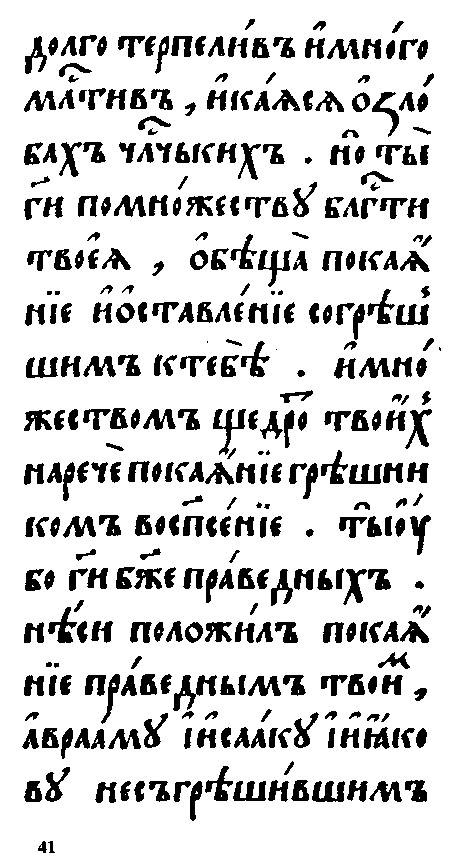 долго терпели́въ и҆мно́го
мл҃тивъ , и҆ка́ѧсѧ ѻ҆ꙁло́
бахъ чл҃чькихъ . но҆ ты̀
гп҃и помно́жествꙋ блг҃ти
твоеѧ̀ , ѻ҆бѣща̀ покаѧ҆́
нїе и҆ѻ҆ставле́нїе согрѣш
шимъ ктебѣ̀ . и҆мно́
жествомъ щедро̑ твои҆х
наречѐ покаѧ҆́нїе грѣшни
комъ воспсе́нїе . ты҆ ѹ҆
бо гп҃и бж҃е пра́ведныхъ .
нѣ́си положи́лъ покаѧ҆́
нїе пра́веднымъ твои҆м ,
а҆враа́мꙋ і҆и҆саа́кꙋ і҆и҆ꙗ҆ко
вꙋ несъгрѣши́вшимъ
41